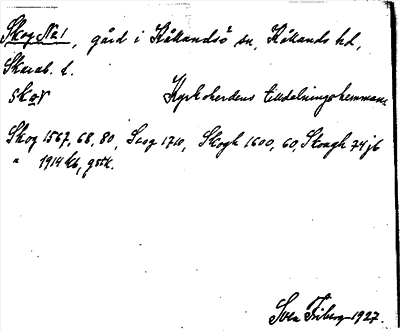 Skog No 1, gård i Kållandsö sn, Kållands hd,
Skarab. l.
skoγ Kyrkoherdens tilldelningshemman
Skog 1567, 68, 80, Scog 1710, Skogh 1600, 60, Skough 74 jb
" 1914 kb, gstk.
Sven Friberg 1927.